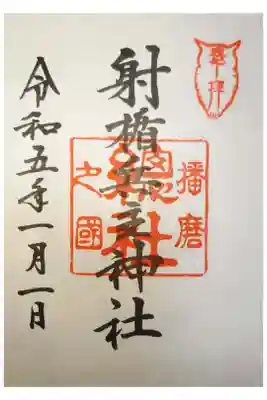 奉拝
射楯兵主神社
播磨
総社
之國
令和五年一月一日